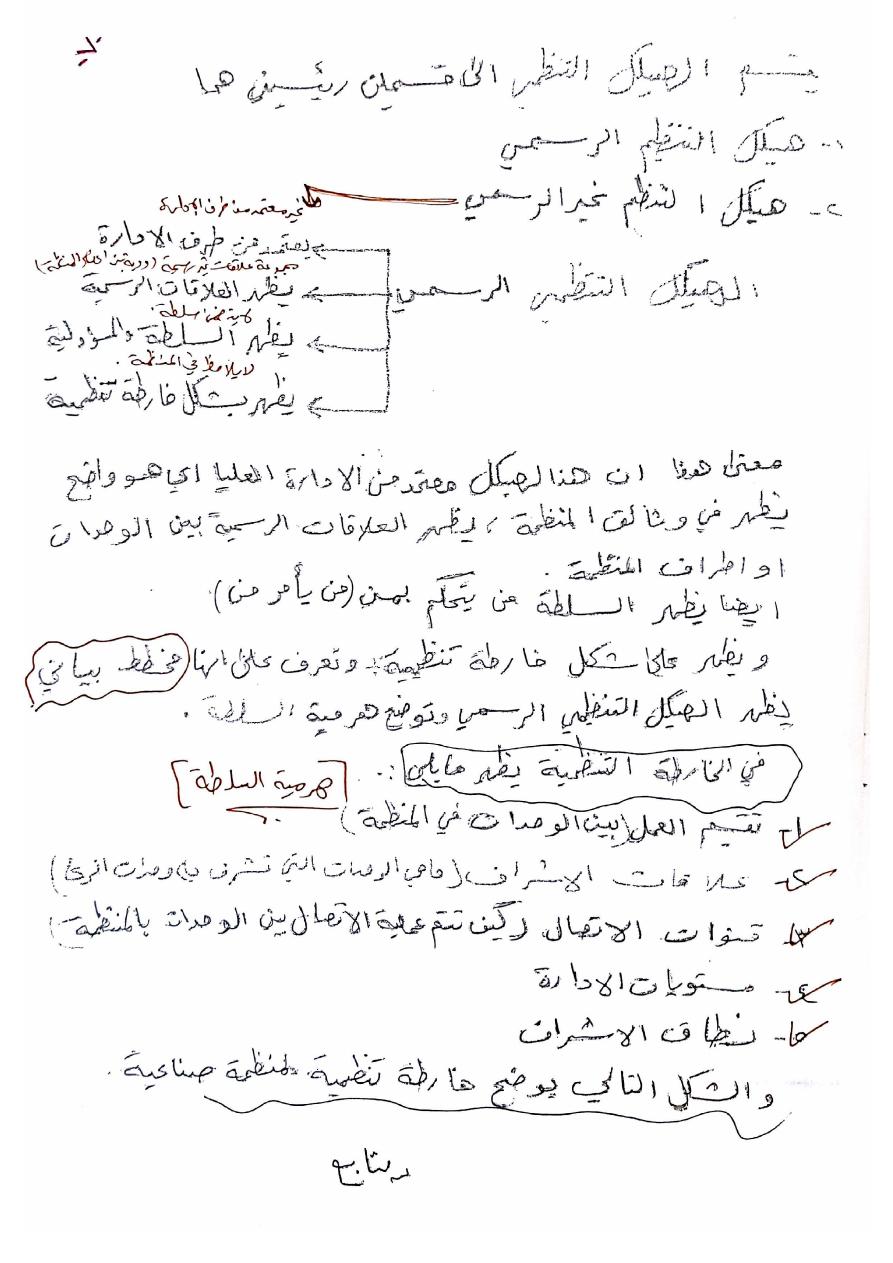 يقسم الهيكل التنظيمي الى قسمين رئيسين هما
١- هيكل التنظيم الرسمي
٢- هيكل التنظيم غير الرسمي
غير معتمد من طرف الادارة
يعتمد من طرف الادارة
مجموعة علاقات غير رسمية (ودية بين اعضاء المنظمة)
الهيكل التنظيمي الرسمي
يظهر العلاقات الرسمية
سلطة
يظهر السلطة والمسؤولية
لا يلاحظ في المنظمة .
يظهر بشكل خارطة تنظيمية
معنى هذا ان هذا الهيكل معتمد من الادارة العليا اي هو واضح
يظهر في وثائق المنظمة ، يظهر العلاقات الرسمية بين الوحدات
او اطراف المنظمة .
ايضا يظهر السلطة من يتحكم بمن (من يأمر من)
ويظهر على شكل خارطة تنظيمية وتعرف على انها مخطط بياني
يظهر الهيكل التنظيمي الرسمي وتوضح هرمية السلطة .
في الخارطة التنظيمية يظهر مايلي :. [هرمية السلطة]
١- تقسيم العمل (بين الوحدات في المنظمة)
٢- علاقات الاشراف (ماهي الوحدات التي تشرف على وحدات اخرى)
٣- قنوات الاتصال (كيف تتم عملية الاتصال بين الوحدات بالمنظمة)
٤- مستويات الادارة
٥- نطاق الاشراف
والشكل التالي يوضح خارطة تنظيمية لمنظمة صناعية .
يتابع